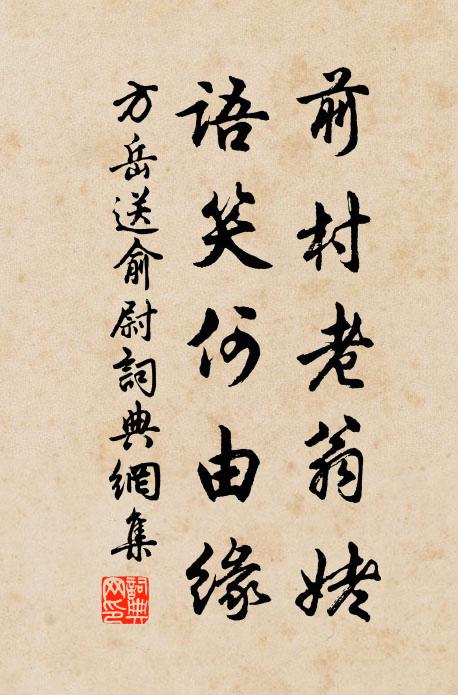 前村老翁姥
語笑何由緣
方岳送俞尉詞典網集
詞典网印